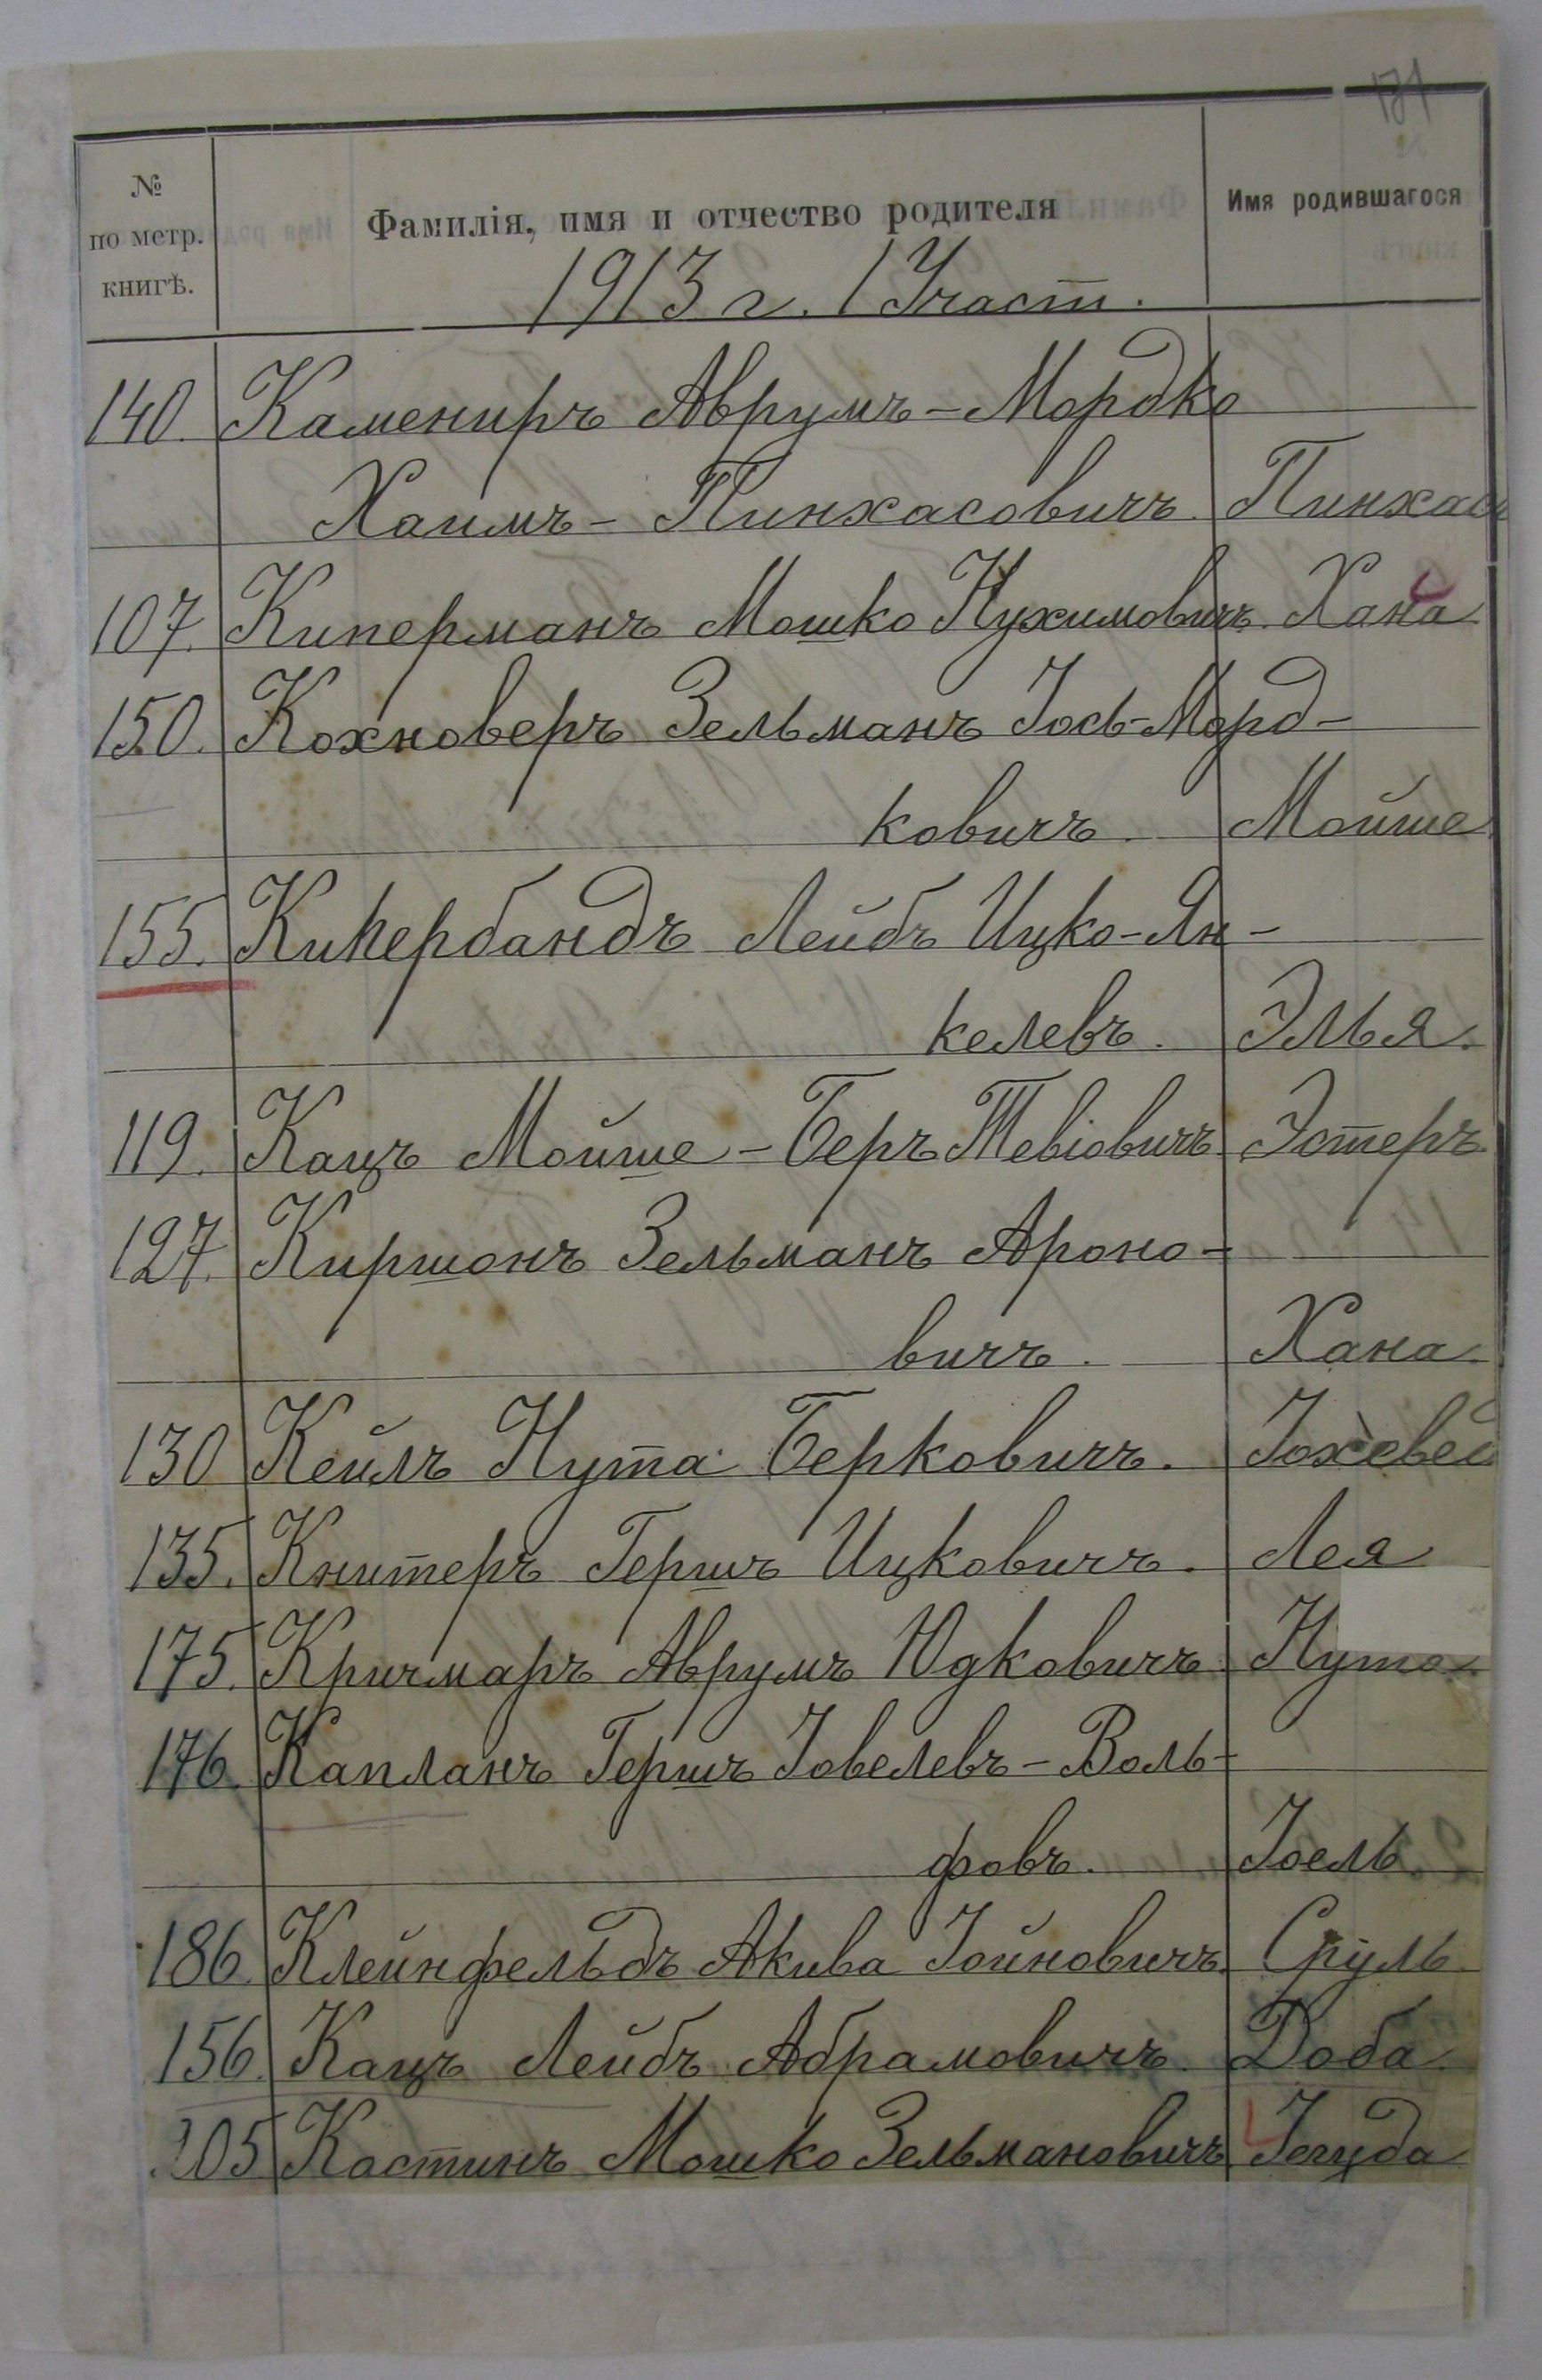 181
№
по метр.
книгѣ.
Фамилія, имя и отчество родителя
Имя родившагося
1913 г. 1 Участ.
140. Камениръ Аврумъ-Мордко
Хаимъ-Пинхасовичъ. Пинхас
107. Киперманъ Мошко Нухимовичъ. Хана
150. Кохноверъ Зельманъ Іось-Морд-
ковичъ. Мойше
155. Кипербандъ Лейбъ Ицко-Ян-
келевъ. Элья.
119. Кацъ Мойше-Беръ Тевіовичъ Эстеръ
127. Киршонъ Зельманъ Ароно-
вичъ. Хана.
130 Кейлъ Нута Берковичъ. Іохевед
135. Книтеръ Гершъ Ицковичъ. Лея
175. Кричмаръ Аврумъ Юдковичъ Нута.
176. Капланъ Гершъ Іовелевъ-Воль-
фовъ. Іоель.
186. Клейнфельдъ Акива Іойновичъ. Сруль
156. Кацъ Лейбъ Абрамовичъ. Доба.
205 Костинъ Мошко Зельмановичъ Іегуда